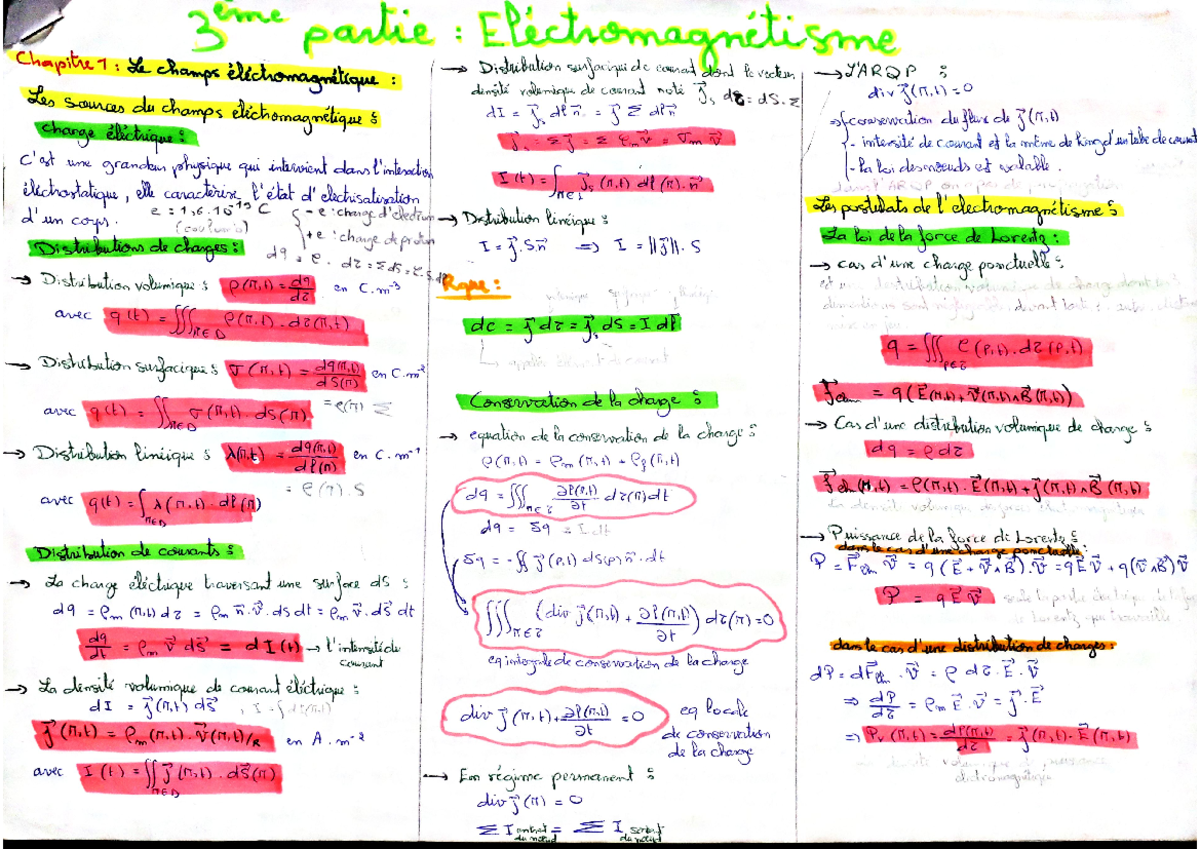 3ème partie : Eléctromagnétisme
Chapitre 1 : Le champs éléctromagnétique :
Les sources du champs eléctromagnétique :
charge éléctrique :
C'est une grandeur physique qui intervient dans l'interaction
éléctrostatique, elle caractérise l'état d'electrisatisation
d'un corps.
e = 1,6.10⁻¹⁹ C
(coulomb)
{ - e : charge d'electron
+ e : charge de proton
Distributions de charges :
dq = ρ. dτ = Σ dS = τ.S.dℓ
→ Distribution volumique : ρ(M,t) = dq/dτ en C.m⁻³
avec q(t) = ∭_{M∈D} ρ(M,t). dτ(M,t)
→ Distribution surfacique : σ(M,t) = dq(M,t)/dS(M) en C.m⁻²
= ρ(M) Σ
avec q(t) = ∬_{M∈D} σ(M,t). dS(M)
→ Distribution linéique : λ(M,t) = dq(M,t)/dℓ(M) en C.m⁻¹
= ρ(M).S
avec q(t) = ∫_{M∈D} λ(M,t). dℓ(M)
Distribution de courants :
→ La charge éléctrique traversant une surface dS :
dq = ρm (M,t) dτ = ρm n⃗.v⃗. ds dt = ρm v⃗. ds⃗ dt
dq/dt = ρm v⃗ ds⃗ = dI(t) → l'intensité du
courant
→ La densité volumique de courant éléctrique :
dI = j⃗(M,t) dS⃗
j⃗(M,t) = ρm(M,t). v⃗(M,t)/R en A.m⁻²
avec I(t) = ∬_{M∈D} j⃗(M,t). dS⃗(M)
→ Distribution surfacique de courant dont le vecteur
densité volumique de courant noté j⃗s dτ = dS. Σ
dI = j⃗s dℓ n⃗ = j⃗ Σ dℓ n⃗
j⃗s = Σ j⃗ = Σ ρm v⃗ = σm v⃗
I(t) = ∫_{M∈Σ} j⃗s (M,t) dℓ(M). n⃗
→ Distribution linéique :
I = j⃗.S.n⃗ ⟹ I = ||j⃗||. S
Rque :
dc = j⃗ dτ = j⃗s dS = I dℓ⃗
Conservation de la charge :
→ equation de la conservation de la charge :
ρ(M,t) = ρm (M,t) + ρf (M,t)
dq = ∭_{M∈τ} ∂ρ(M,t)/∂t dτ(M) dt
dq = δq = I dt
δq = - ∯ j⃗(P,t) ds(P) n⃗. dt
∭_{M∈τ} (div j⃗(M,t) + ∂ρ(M,t)/∂t) dτ(M) = 0
eq integrale de conservation de la charge
div j⃗(M,t) + ∂ρ(M,t)/∂t = 0 eq locale
de conservation
de la charge
→ En régime permanent :
div j⃗(M) = 0
Σ I entrant du nœud = Σ I sortant du nœud
→ L'ARQP :
div j⃗(M,t) = 0
⇒ { - conservation du flux de j⃗(M,t)
- intensité de courant est la même de long d'un tube de courant
- la loi des nœuds est valable.
dans l'ARQP on a pas de propagation
Les postulats de l'electromagnétisme :
La loi de la force de Lorentz :
→ cas d'une charge ponctuelle :
q = ∭_{P∈τ} ρ(P,t). dτ(P,t)
= q(E⃗(M,t) + v⃗(M,t) ∧ B⃗(M,t))
→ Cas d'une distribution volumique de charge :
dq = ρ dτ
(M,t) = ρ(M,t). E⃗(M,t) + j⃗(M,t) ∧ B⃗(M,t)
→ Puissance de la force de Lorentz :
dans le cas d'une charge ponctuelle :
P = F⃗. v⃗ = q(E⃗ + v⃗∧B⃗). v⃗ = qE⃗ v⃗ + q(v⃗∧B⃗) v⃗
P = q E⃗ v⃗
dans le cas d'une distribution de charges :
dP = dF⃗. v⃗ = ρ dτ. E⃗. v⃗
⇒ dP/dτ = ρm E⃗. v⃗ = j⃗. E⃗
⇒ Pv (M,t) = dP(M,t)/dτ = j⃗(M,t). E⃗(M,t)